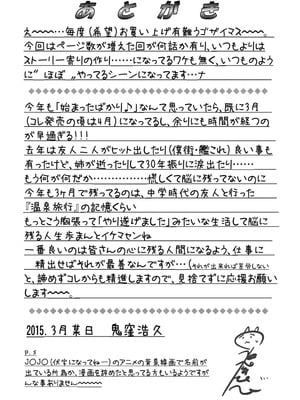 あとがき
え〜〜…毎度（希望）お買い上げ有難うゴザイマス〜〜。
今回はページ数が増えた回が何話か有り、いつもよりは
ストーリー寄りの作り……になってるワケも無く、いつものよう
に“ほぼ”やってるシーンになってます…ナ
今年も「始まったばかり♪」なんて思っていたら、既に3月
（コレ発売の頃は4月）になってるし、余りにも時間が経つの
が早過ぎる!!!
去年は友人二人がヒット出したり（復術・艦これ）良い事も
有ったけど、姉が逝ったりして30年振りに涙出たり……
もう何が何だか…………慌しくて脳に残ってないのに
今年も3ヶ月で残ってるのは、中学時代の友人と行った
『温泉旅行』の記憶くらい
もっとこう胸張って「やり遂げました」みたいな生活して脳に
残る人生歩まんとイケマセンね
一番良いのは皆さんの心に残る人間になるよう、仕事に
精出せばそれが最善なんですが…（それが出来れば苦労しない）
と、諦めずコレからも精進しますので、見捨てずに応援お願い
します〜〜〜。
2015.3月某日 鬼窪浩久
P.S
JOJO（伏字になってねー）のアニメの背景絵画で名前が
出ている所為か、漫画を辞めたと思ってる方もいるようですが
んな事ありませんー〜〜〜〜